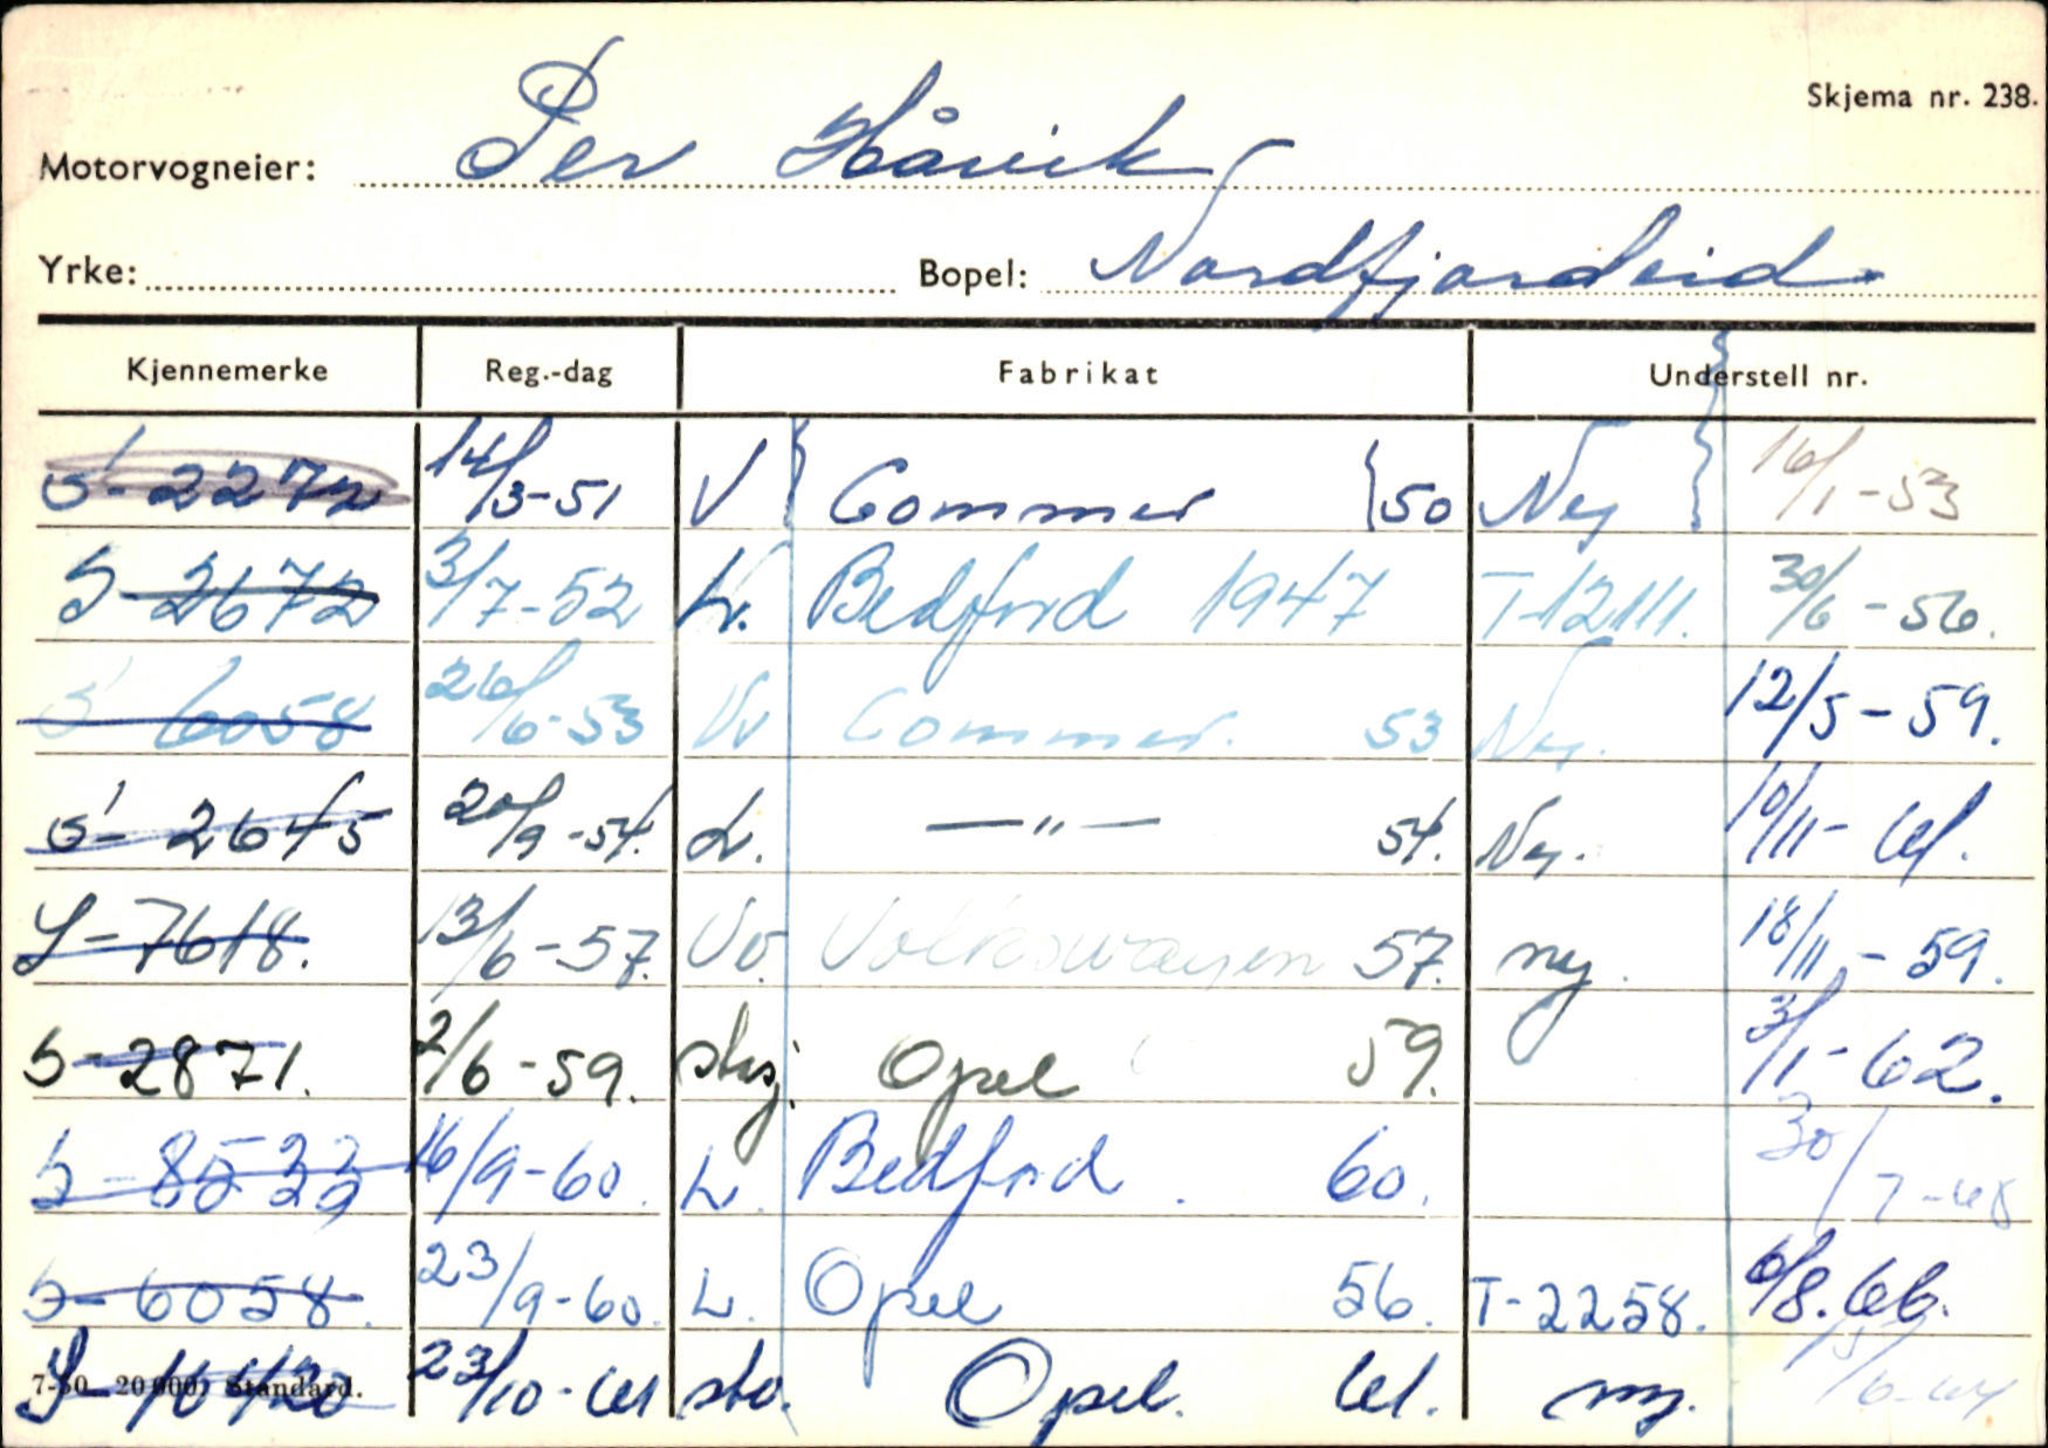 Skjema nr. 238.
Motorvogneier: Per Håvik
Yrke: Bopel: Nordfjordeid
Kjennemerke Reg.-dag Fabrikat Understell nr.
S-2272 14/3-51 V Commer 50 Ny 16/1-53
S-2672 3/7-52 L. Bedford 1947 T-12111. 30/6-56.
S 6058 26/6-53 Vv Commer. 53 Ny. 12/5-59.
S-2645 20/9-54. L. —"— 54. Ny. 10/11-61.
S-7618. 13/6-57. Vv. Volkswagen 57. ny. 18/11-59.
S-2871. 2/6-59. stsj. Opel 59. 3/1-62.
S-8533 16/9-60. L. Bedford. 60. 30/7-68
S-6058. 23/9-60. L. Opel 56. T-2258. 6/8.66.
S-10420 23/10-61 sto. Opel. 61. ny. 15/6-64
7-50. 20 000. Standard.